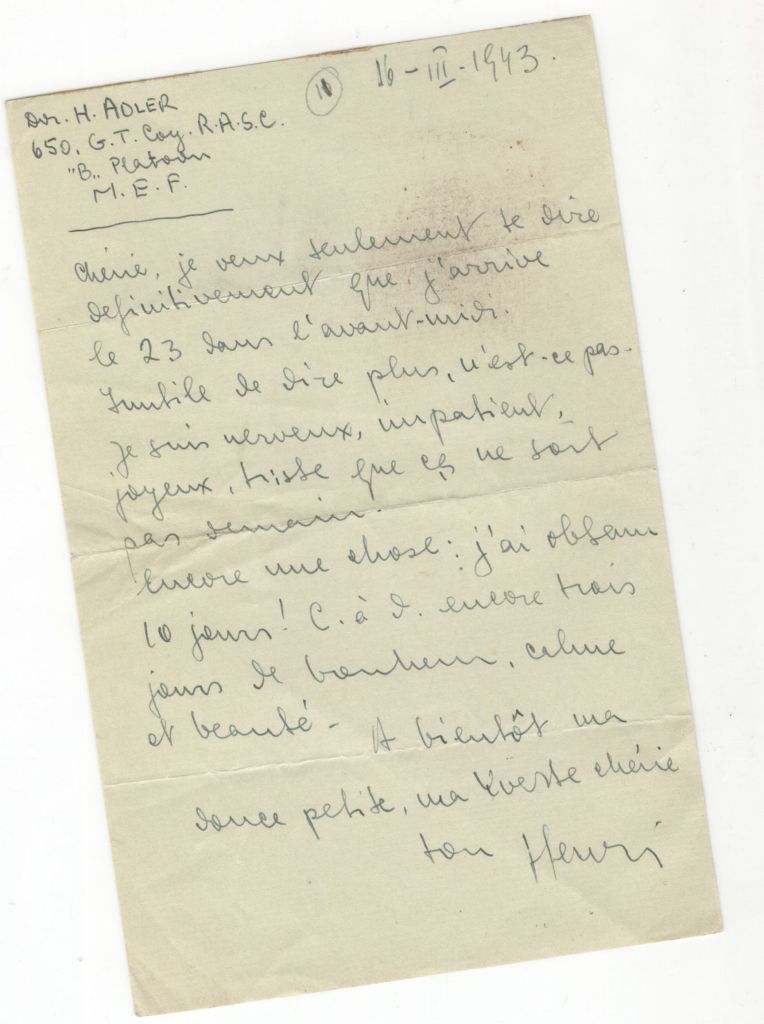 16-III-1943.
11
Dvr. H. ADLER
650. G. T. Coy. R.A.S.C.
"B„ Platoon
M. E. F.
Chérie, je veux seulement te dire
definitivement que j'arrive
le 23 dans l'avant-midi.
Inutile de dire plus, n'est-ce pas.
Je suis nerveux, impatient,
joyeux, triste que ça ne soit
pas demain.
Encore une chose: j'ai obtenu
10 jours! C. à d. encore trois
jours de bonheur, calme
et beauté - A bientôt ma
douce petite, ma Yvette chérie
ton Henri